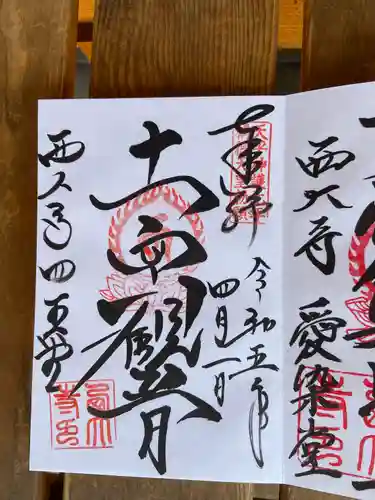 奉拝
令和五年
四月一日
十一面観音
西大寺四王堂
西大寺
愛染堂